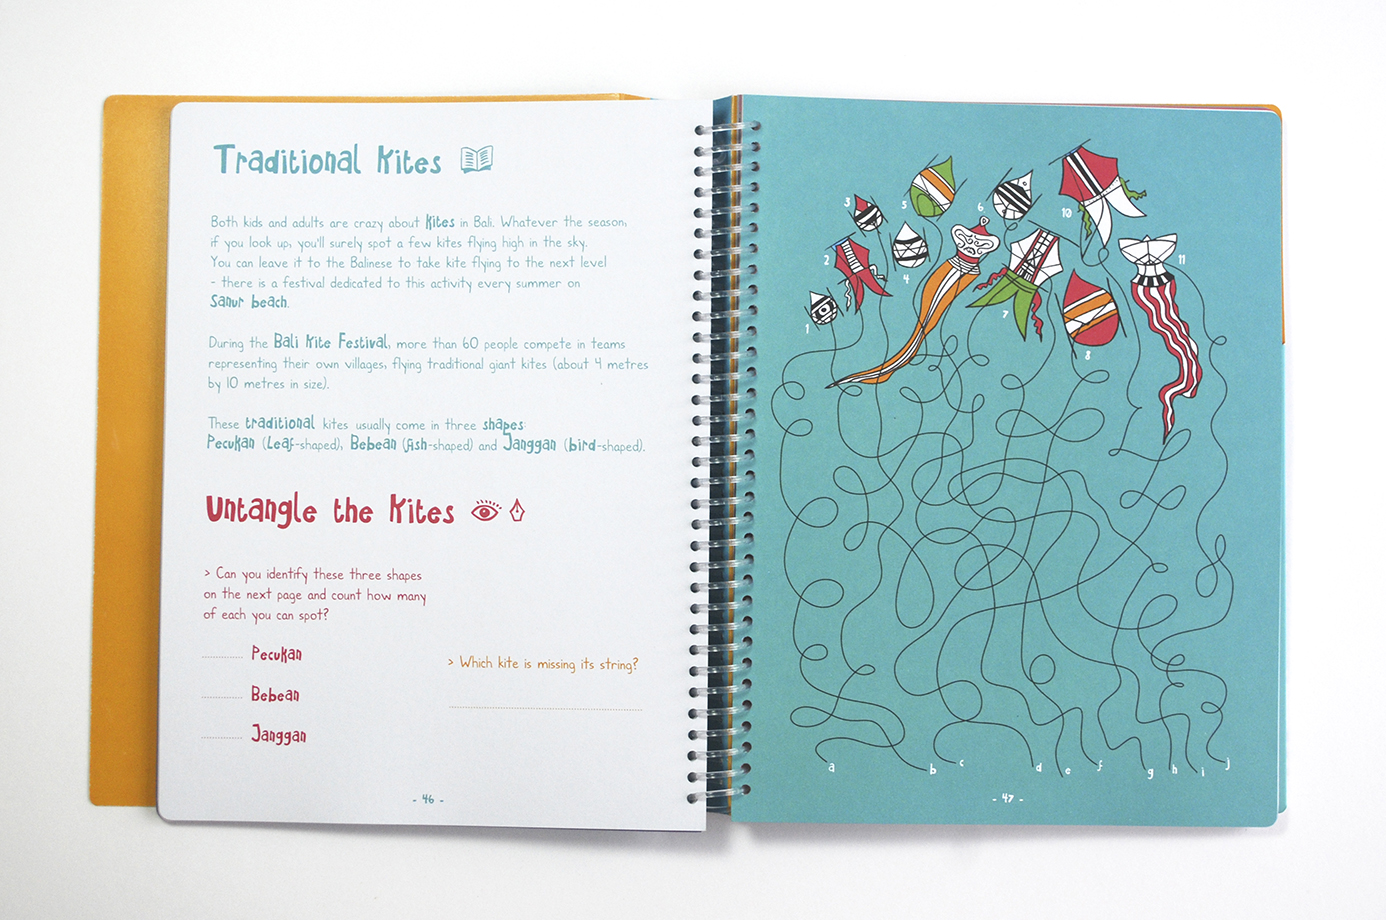 Traditional Kites
Both kids and adults are crazy about Kites in Bali. Whatever the season,
if you look up, you'll surely spot a few kites flying high in the sky.
You can leave it to the Balinese to take kite flying to the next level
- there is a festival dedicated to this activity every summer on
Sanur beach.
During the Bali Kite Festival, more than 60 people compete in teams
representing their own villages, flying traditional giant kites (about 4 metres
by 10 metres in size).
These traditional kites usually come in three shapes:
Pecukan (Leaf-shaped), Bebean (fish-shaped) and Janggan (bird-shaped).
Untangle the Kites
> Can you identify these three shapes
on the next page and count how many
of each you can spot?
Pecukan
Bebean
Janggan
> Which kite is missing its string?
- 46 -
3
5
6
10
2
4
11
1
7
8
a
b
c
d
e
f
g
h
i
j
- 47 -